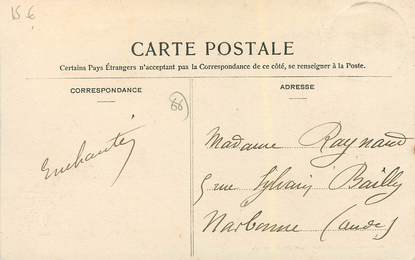 15 €
CARTE POSTALE
Certains Pays Étrangers n'acceptant pas la Correspondance de ce côté, se renseigner à la Poste.
CORRESPONDANCE
ADRESSE
86
Enchantée
Madame Raynaud
5 rue Sylvain Bailly
Narbonne (Aude)